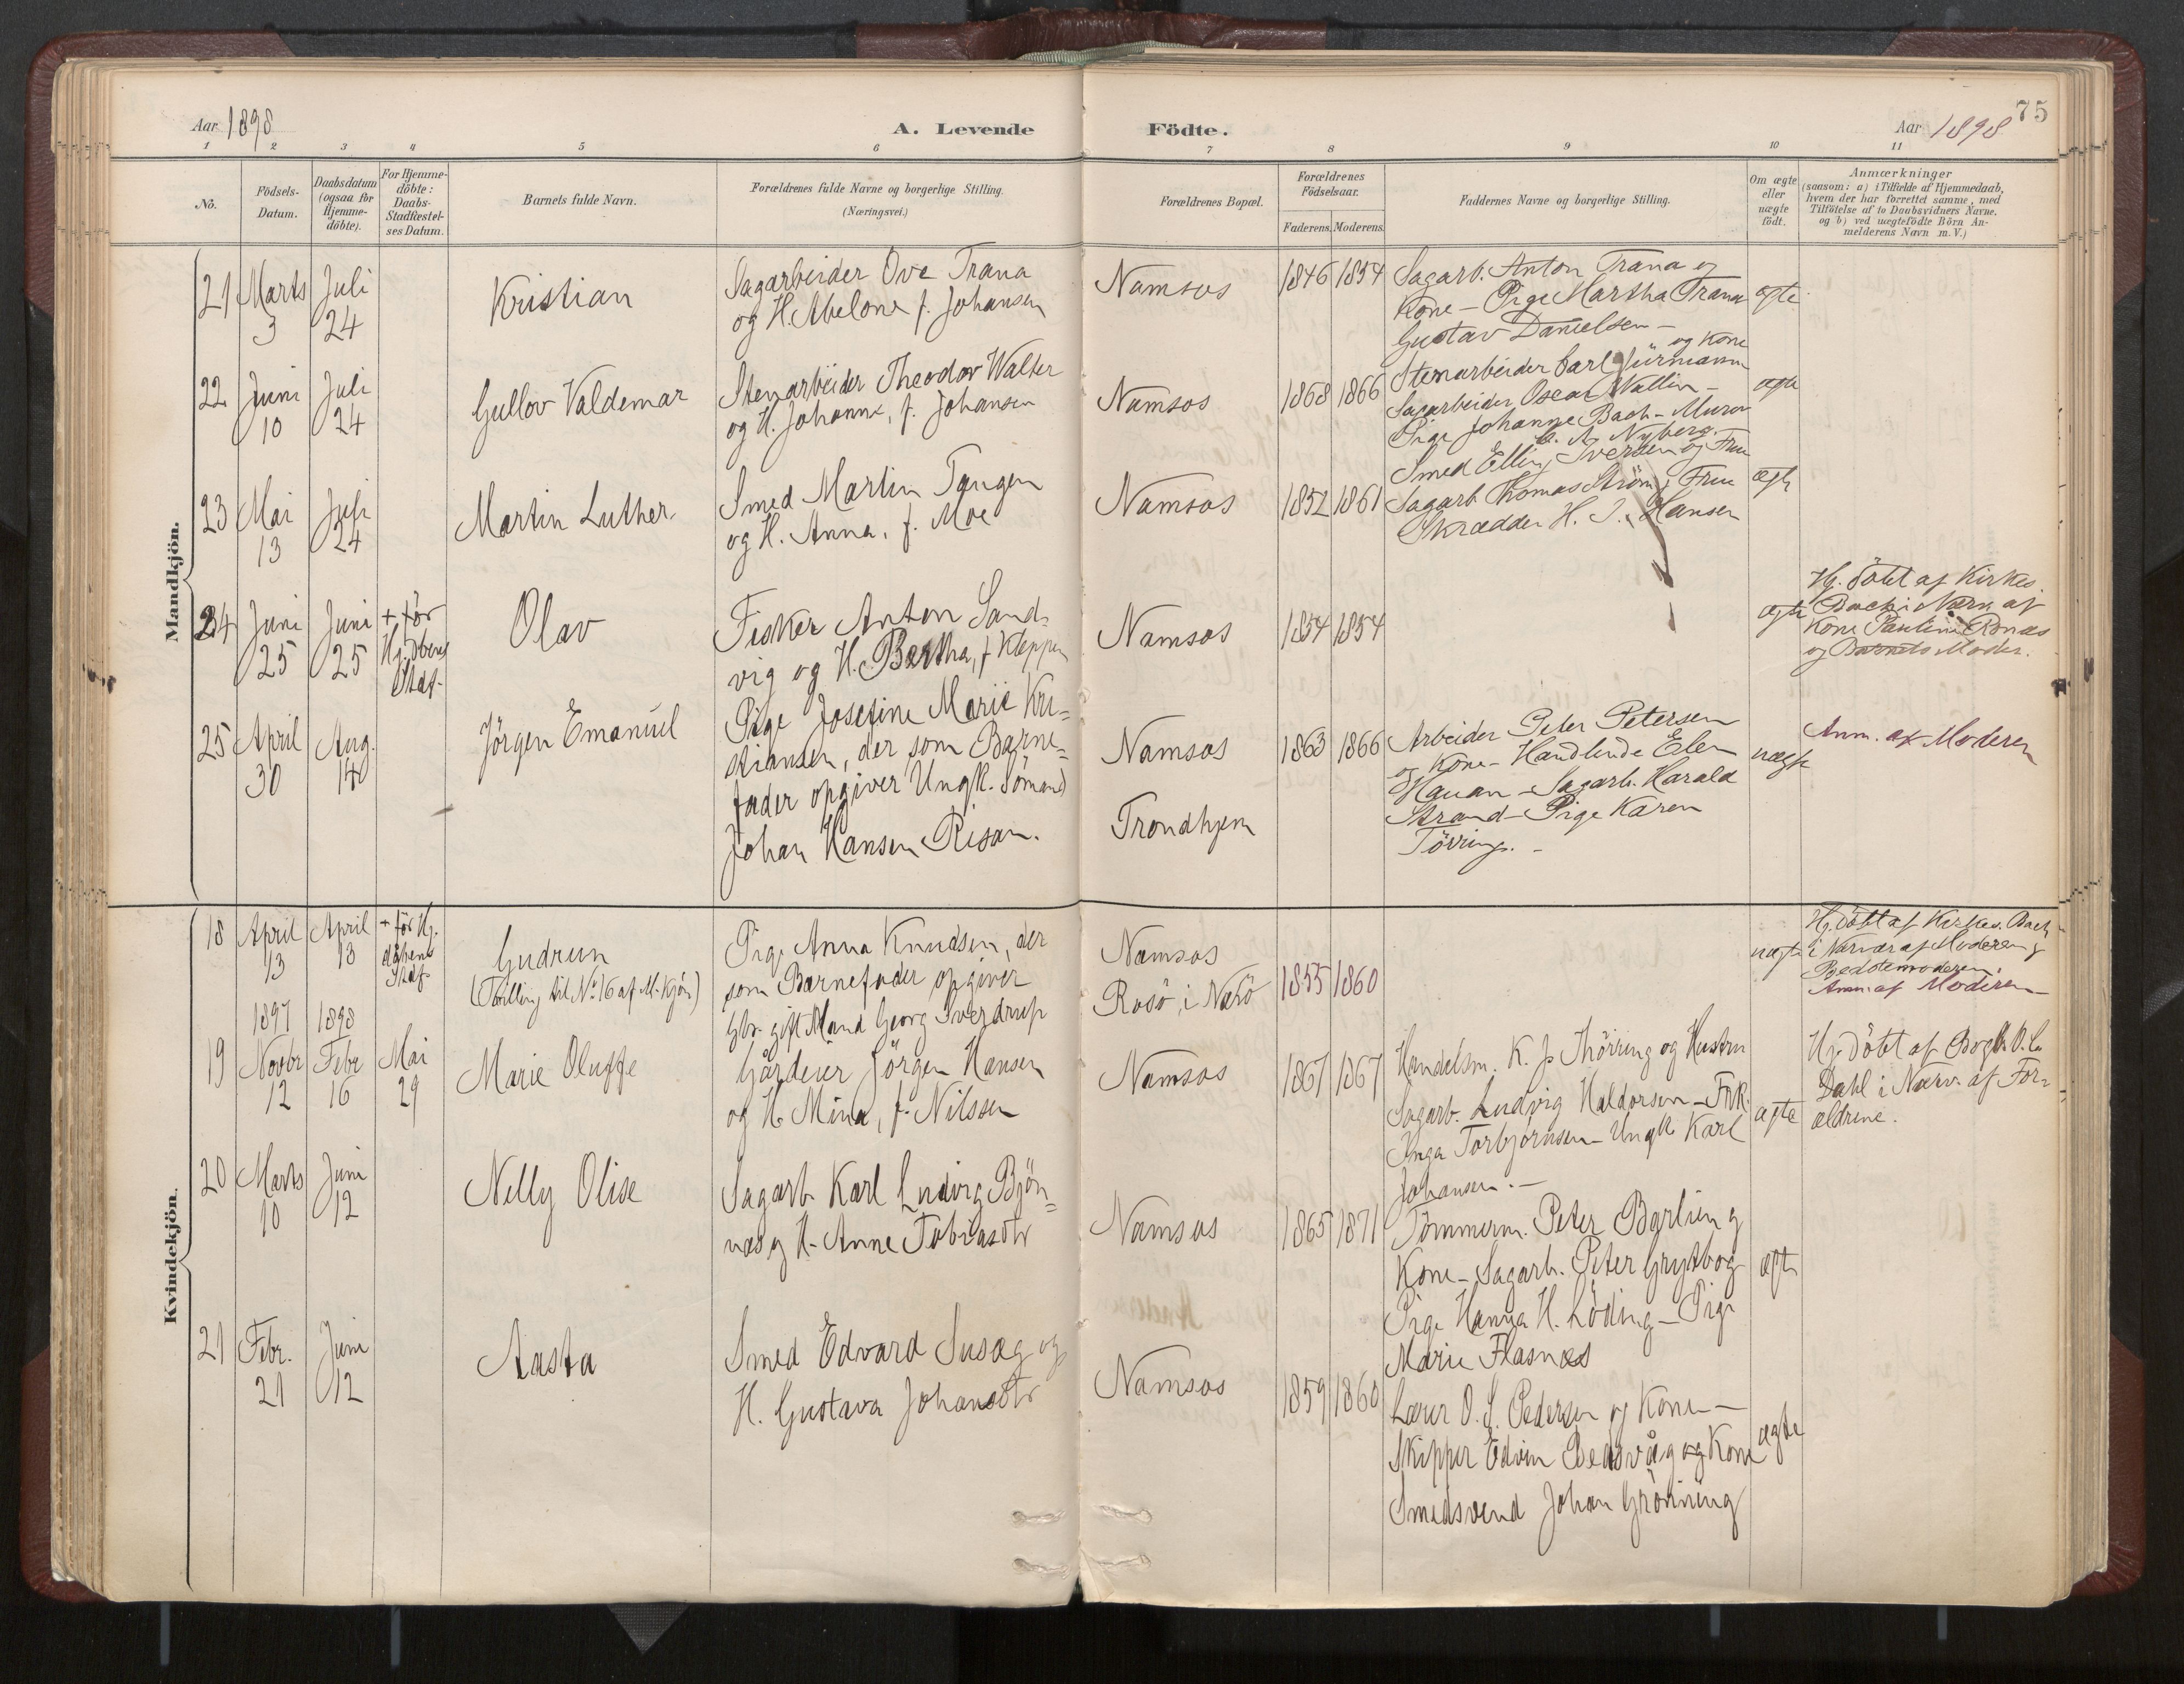 75
Aar 1898
A. Levende
Födte.
Aar 1898
1 2 3 4 5 6 7 8 9 10 11
No.
Födsels-Datum.
Daabsdatum (ogsaa for Hjemme-döbte).
For Hjemme-döbte: Daabs-Stadfæstel-ses Datum.
Barnets fulde Navn.
Forældrenes fulde Navne og borgerlige Stilling.
(Næringsvei.)
Forældrenes Bopæl.
Forældrenes Födselsaar.
Faderens. Moderens.
Faddernes Navne og borgerlige Stilling.
Om ægte eller uægte födt.
Anmærkninger
(saasom: a) i Tilfælde af Hjemmedaab,
hvem der har forrettet samme, med
Tilföielse af to Daabsvidners Navne.
og b) ved uægtefödte Börn An-
melderens Navn m. V.)
Mandkjön.
21 Marts 3 Juli 24
Kristian
Sagarbeider Ove Trana
og H. Abelone f. Johansen
Namsos
1846 1854
Sagarb. Anton Trana og
Kone - Pige Martha Trana
Gustav Danielsen -
ægte
22 Juni 10 Juli 24
Gullov Valdemar
Stenarbeider Theodor Walter
og H. Johanne, f. Johansen
Namsos
1868 1866
og Kone
Stenarbeider Carl
Sagarbeider Oscar Wallin -
Pige Johanne Bach - Murer
C. A. Nyberg. -
ægte
23 Mai 13 Juli 24
Martin Luther.
Smed Martin Tangen
og H. Anna, f. Moe
Namsos
1852 1861
Smed Elling Iversen og Frue
Sagarb. Thomas Ström, Frue
Skrædder H. J. Hansen
ægte
24 Juni 25 Juni 25
+ för Hj. dbens Stadf.
Olav
Fisker Anton Sand-
vig og H. Bertha, f. Kleppen
Namsos
1854 1854
ægte
Hj. döbt af Kirkes.
Bach i Nærv. af
Kone Pauline Rönæs
og Barnets Moder.
25 April 30 Aug. 14
Jörgen Emanuel
Pige Josefine Marie Kri=
stiansen, der som Barne=
fader opgiver Ungk. Sömand
Johan Hansen Risan.
Namsos
Trondhjem
1863 1866
Arbeider Peter Petersen
og Kone - Handlende Elen
Hauan - Sagarb. Harald
Strand - Pige Karen
Törring. -
uægte
Anm. af Moderen
Kvindekjön.
18 April 13 April 13
+ för Hj. döbens Stadf.
Gudrun
(Tvilling til No 16 af M. Kjön)
Pige Anna Knudsen, der
som Barnefader opgiver
Gbr. gift Mand Georg Sverdrup
Namsos
Rosö, i Nærö
1855 1860
uægte
Hj. döbt af Kirkes. Bach
i Nærvær af Moderen og
Bedstemoderen.
Anm. af Moderen
19 1897 Novbr 12 1898 Febr 16 Mai 29
Marie Oluffe
Gårdeier Jörgen Hansen
og H. Mina, f. Nilssen
Namsos
1867 1867
Handelsm. K. J. Thörring og Hustru
Sagarb. Ludvig Haldorsen - Frk.
Inga Torbjörnsen - Ungk. Karl
Johansen. -
ægte
Hj. döbt af Bogh. O. L.
Dahl i Nærv. af For-
ældrene.
20 Marts 10 Juni 12
Nelly Olise
Sagarb. Karl Ludvig Bjön=
næs og H. Anne Tobiasdtr
Namsos
1865 1871
Tömmerm. Peter Barlien og
Kone - Sagarb. Peter Grytbog
Pige Hanna H. Löding - Pige
Marie Flasnæs
ægte
21 Febr. 21 Juni 12
Aasta
Smed Edvard Susæg og
H. Gustava Johansdtr
Namsos
1859 1860
Lærer O. S. Pedersen og Kone -
Skipper Edvin Bedsvåg og Kone
Smedsvend Johan Grönning
ægte